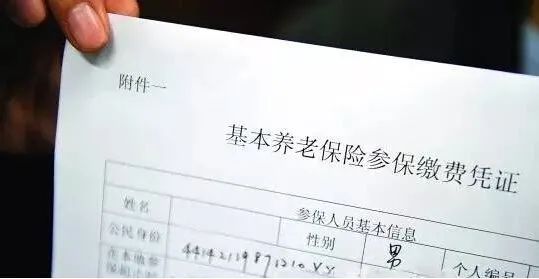 附件一
基本养老保险参保缴费凭证
参保人员基本信息
姓名 性别 男 个人编号
公民身份
在本地参